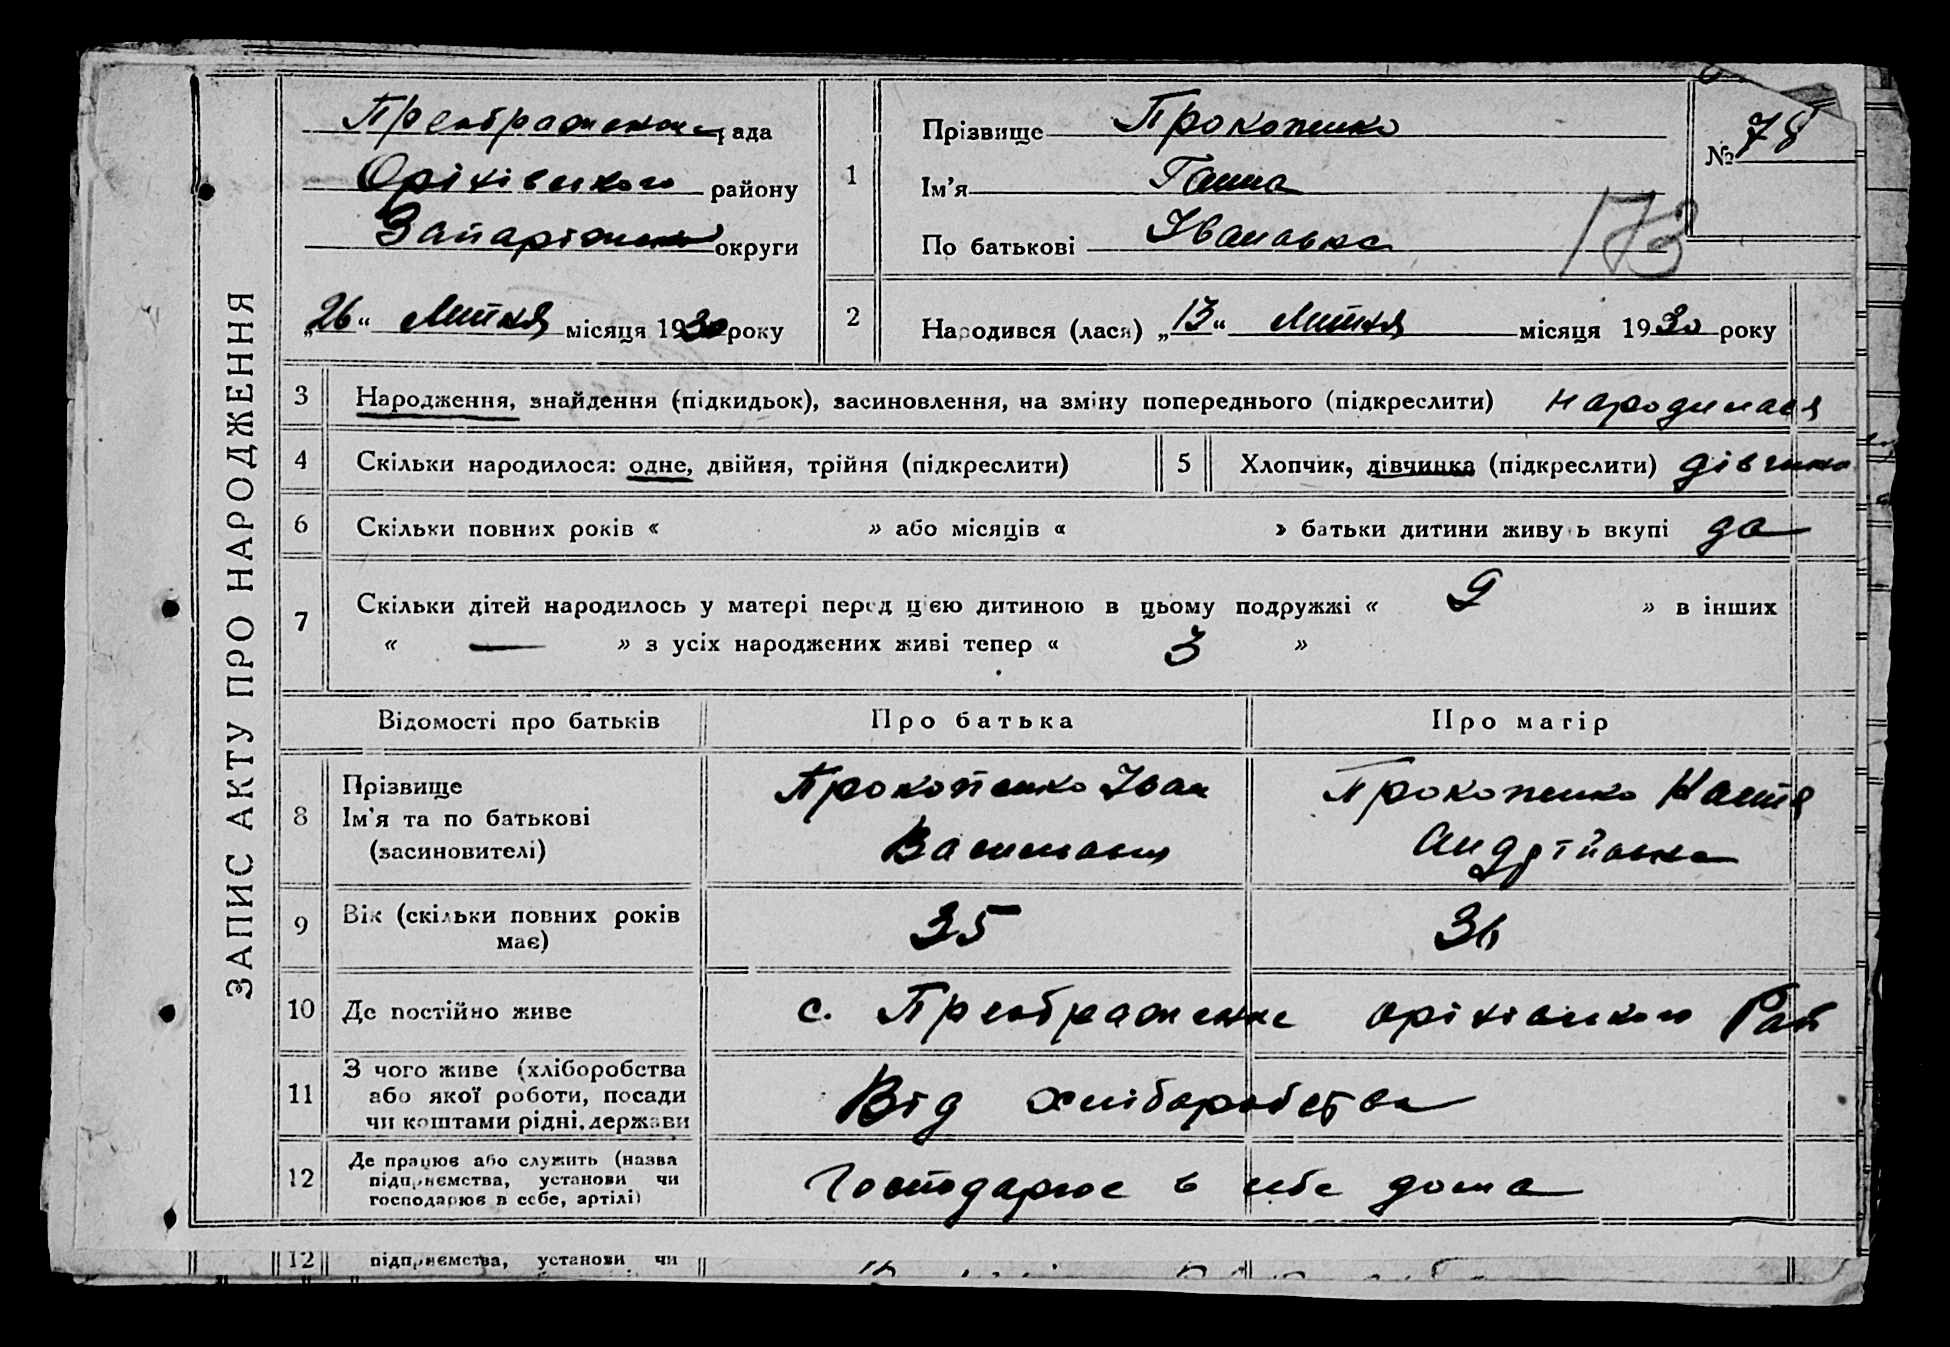 ЗАПИС АКТУ ПРО НАРОДЖЕННЯ
Преображенська рада
Оріхівського району
Запоріжської округи
„26“ Лютня місяця 1930 року
1
Прізвище Прокопенко
Ім'я Ганна
По батькові Івановна
№ 78
173
2
Народився (лася) „13“ Лютня місяця 1930 року
3 Народження, знайдення (підкидьок), засиновлення, на зміну попереднього (підкреслити) народилася
4 Скільки народилося: одне, двійня, трійня (підкреслити) 5 Хлопчик, дівчинка (підкреслити) дівчинка
6 Скільки повних років « » або місяців « » батьки дитини живуть вкупі да
7 Скільки дітей народилось у матері перед цією дитиною в цьому подружжі « 9 » в інших
« — » з усіх народжених живі тепер « 3 »
Відомості про батьків Про батька Про матір
8 Прізвище
Ім'я та по батькові
(засиновителі)
Прокопенко Іван
Васильович
Прокопенко Настя
Андріївна
9 Вік (скільки повних років
має) 35 36
10 Де постійно живе с. Преображенке оріхівського Рай
11 З чого живе (хліборобства
або якої роботи, посади
чи коштами рідні, держави
Від хліборобства
12 Де працює або служить (назва
підприємства, установи чи
господарює в себе, артілі)
Господарює в себе дома
12 підприємства, установи чи